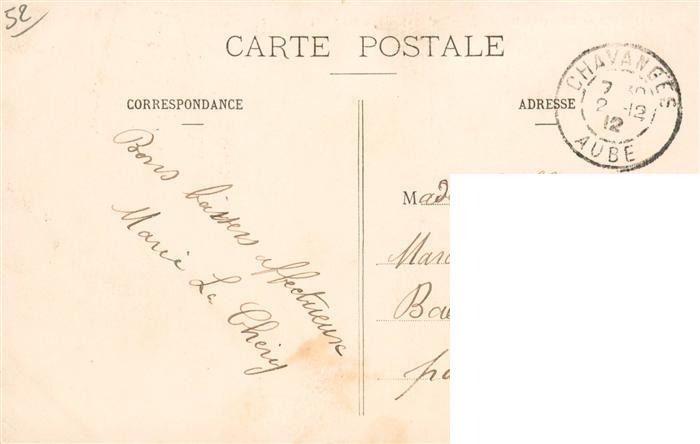 52
CARTE POSTALE
CORRESPONDANCE
ADRESSE
CHAVANGES
7
2 -12
12
AUBE
Bons baisers affectueux
Marie Le Chéry
Mad
Mar
Ba
pa